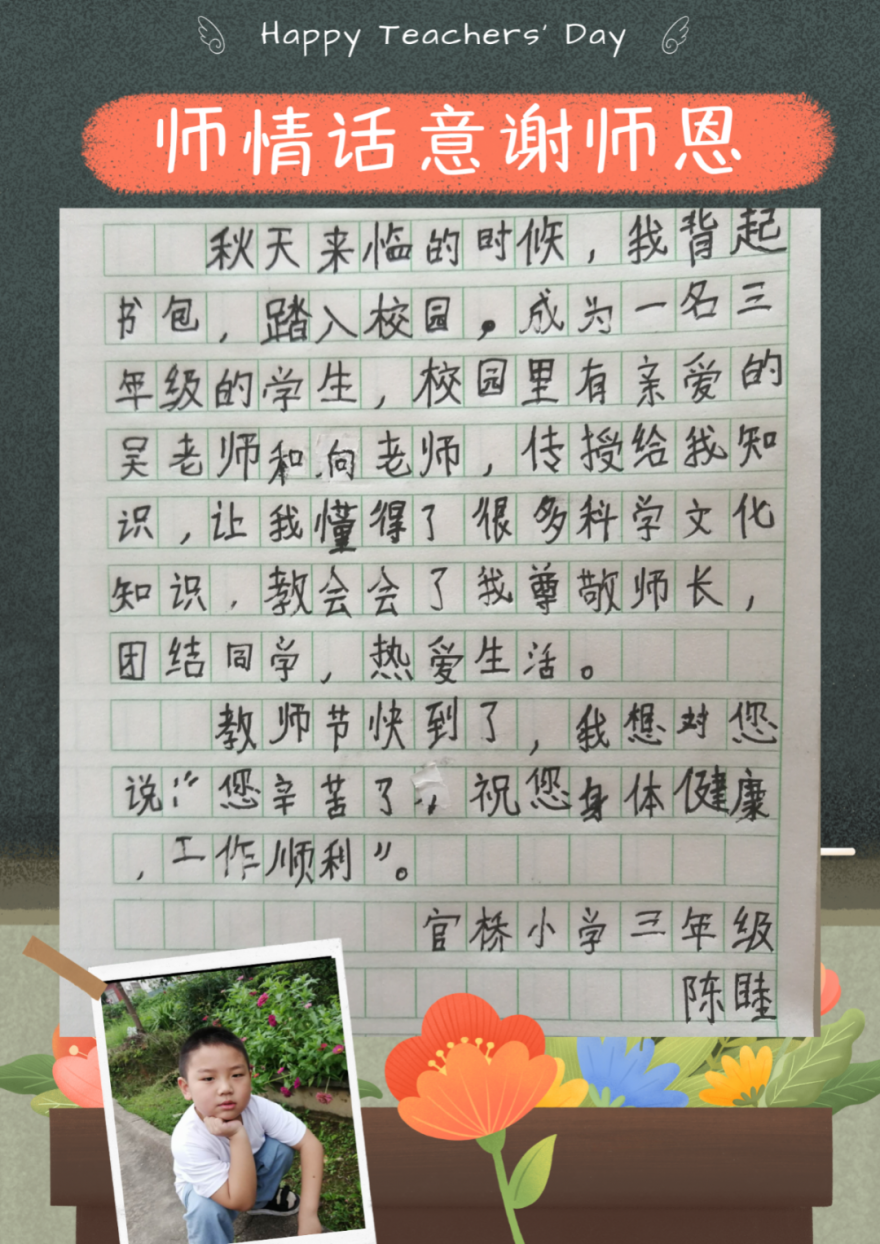 Happy Teachers' Day
师情话意谢师恩
秋天来临的时候，我背起
书包，踏入校园。成为一名三
年级的学生，校园里有亲爱的
吴老师和向老师，传授给我知
识，让我懂得了很多科学文化
知识，教会会了我尊敬师长，
团结同学，热爱生活。
教师节快到了，我想对您
说：“您辛苦了，祝您身体健康
，工作顺利”。
官桥小学三年级
陈睦